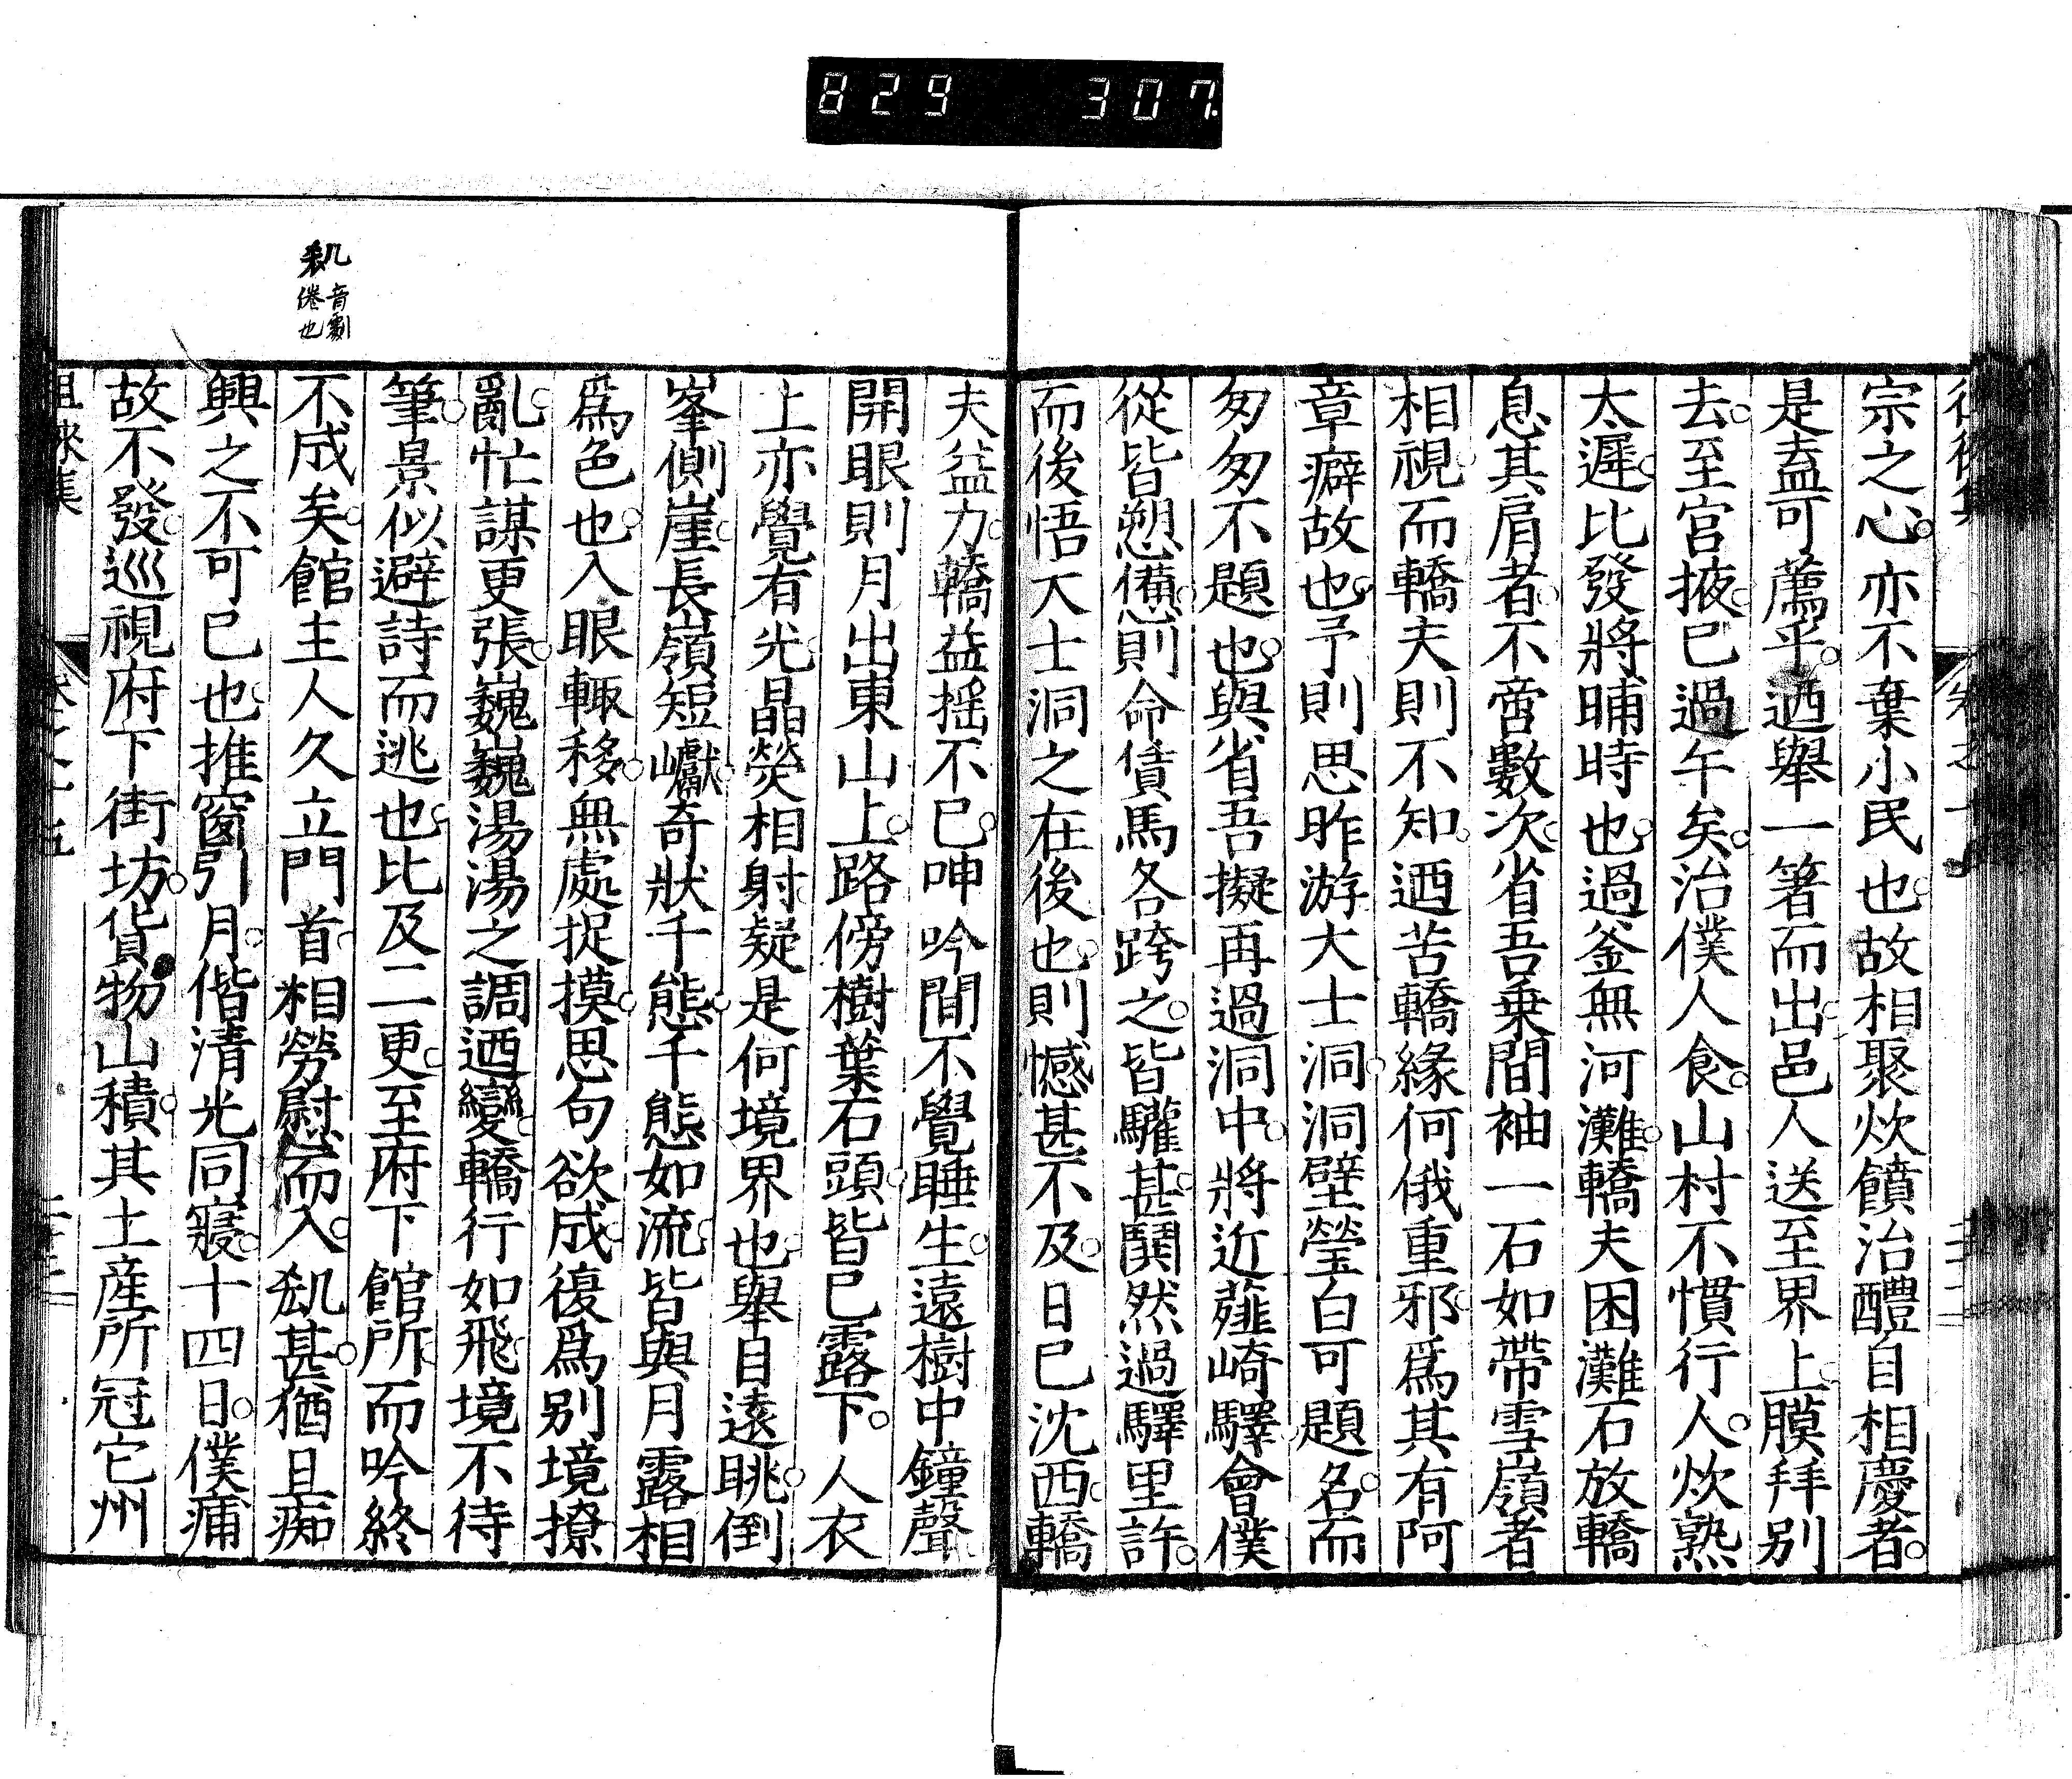 829 307
宗之心亦不棄小民也故相聚炊饋治醴自相慶者
是盍可薦乎迺舉一箸而出邑人送至界上膜拜別
去至宮掖已過午矣治僕人食山村不慣行人炊熟
太遲比發將晡時也過釜無河灘轎夫困灘石放轎
息其肩者不啻數次省吾乗間袖一石如帶雪嶺者
相視而轎夫則不知迺苦轎緣何俄重邪爲其有阿
章癖故也予則思昨游大士洞洞壁瑩白可題名而
匆匆不題也與省吾擬再過洞中將近薤崎驛會僕
從皆愬憊則命債馬各跨之皆驩甚鬨然過驛里許
而後悟大士洞之在後也則憾甚不及日已沈西轎
夫益力轎益揺不已呻吟間不覺睡生遠樹中鐘聲
開眼則月出東山上路傍樹葉石頭皆已露下人衣
上亦覺有光晶熒相射疑是何境界也舉目遠眺倒
峯側崖長嶺短巘奇狀千態千態如流皆與月露相
爲色也入眼輙移無處捉摸思句欲成復爲別境撩
亂忙謀更張巍巍湯湯之調迺變轎行如飛境不待
筆景似避詩而逃也比及二更至府下館所而吟終
不成矣館主人久立門首相勞慰而入㔘甚猶且痴
興之不可已也推窗引月偕清光同寢十四日僕痡
故不發巡視府下街坊貨物山積其土産所冠它州
㔘音劇
倦也
徂徠集
卷之十五